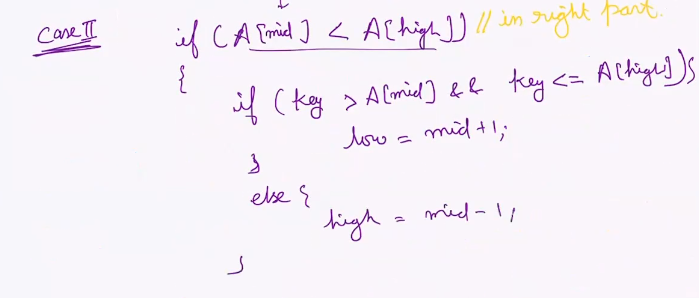 Case II if (A[mid] < A[high]) // in right part.
{
if (key > A[mid] && key <= A[high]){
low = mid+1;
}
else {
high = mid-1;
}